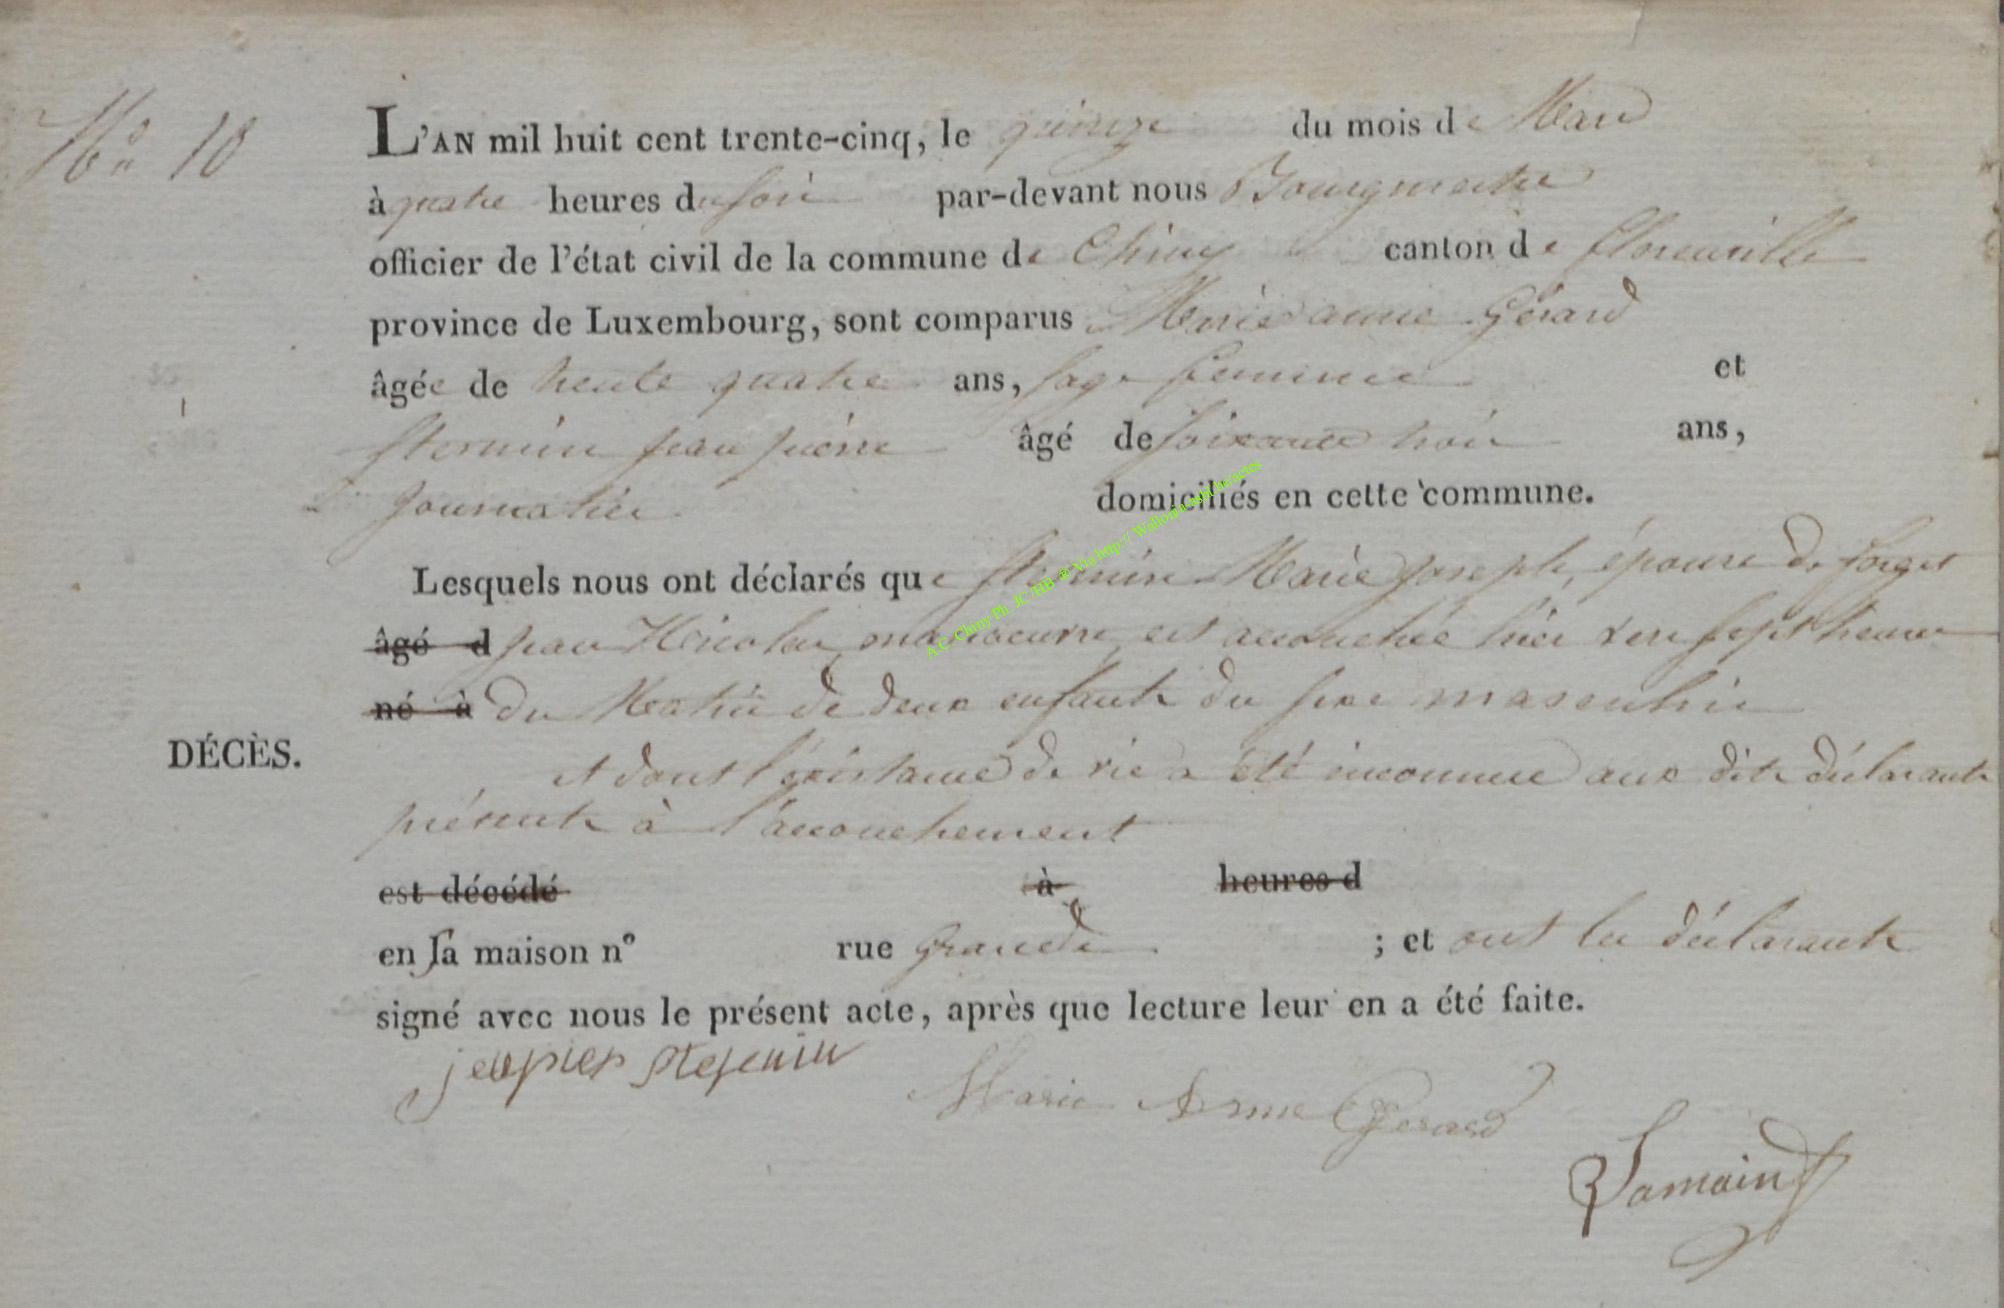 No 10
L'AN mil huit cent trente-cinq, le quinze du mois de Mars
à quatre heures du soir par-devant nous Bourgmestre
officier de l'état civil de la commune de Chiny canton de florenville
province de Luxembourg, sont comparus Marie anne Gérard
âgée de trente quatre ans, sage femme et
jean pierre âgé de soixante trois ans,
journalier domiciliés en cette commune.
Lesquels nous ont déclarés que Marie joseph, épouse de forget
âgé d jean Nicolas, manoeuvre, est accouchée hier vers sept heures
né à du Matin de deux enfants du sexe masculin
DÉCÈS.
et dont l'existance de vie a été inconnue aux dits déclarants
présents à l'accouchement
est décédé à heures d
en sa maison n° rue Grande ; et ont les déclarants
signé avec nous le présent acte, après que lecture leur en a été faite.
Marie Anne Gerard
A.C. Chiny Ph JC/HB @ Via http://